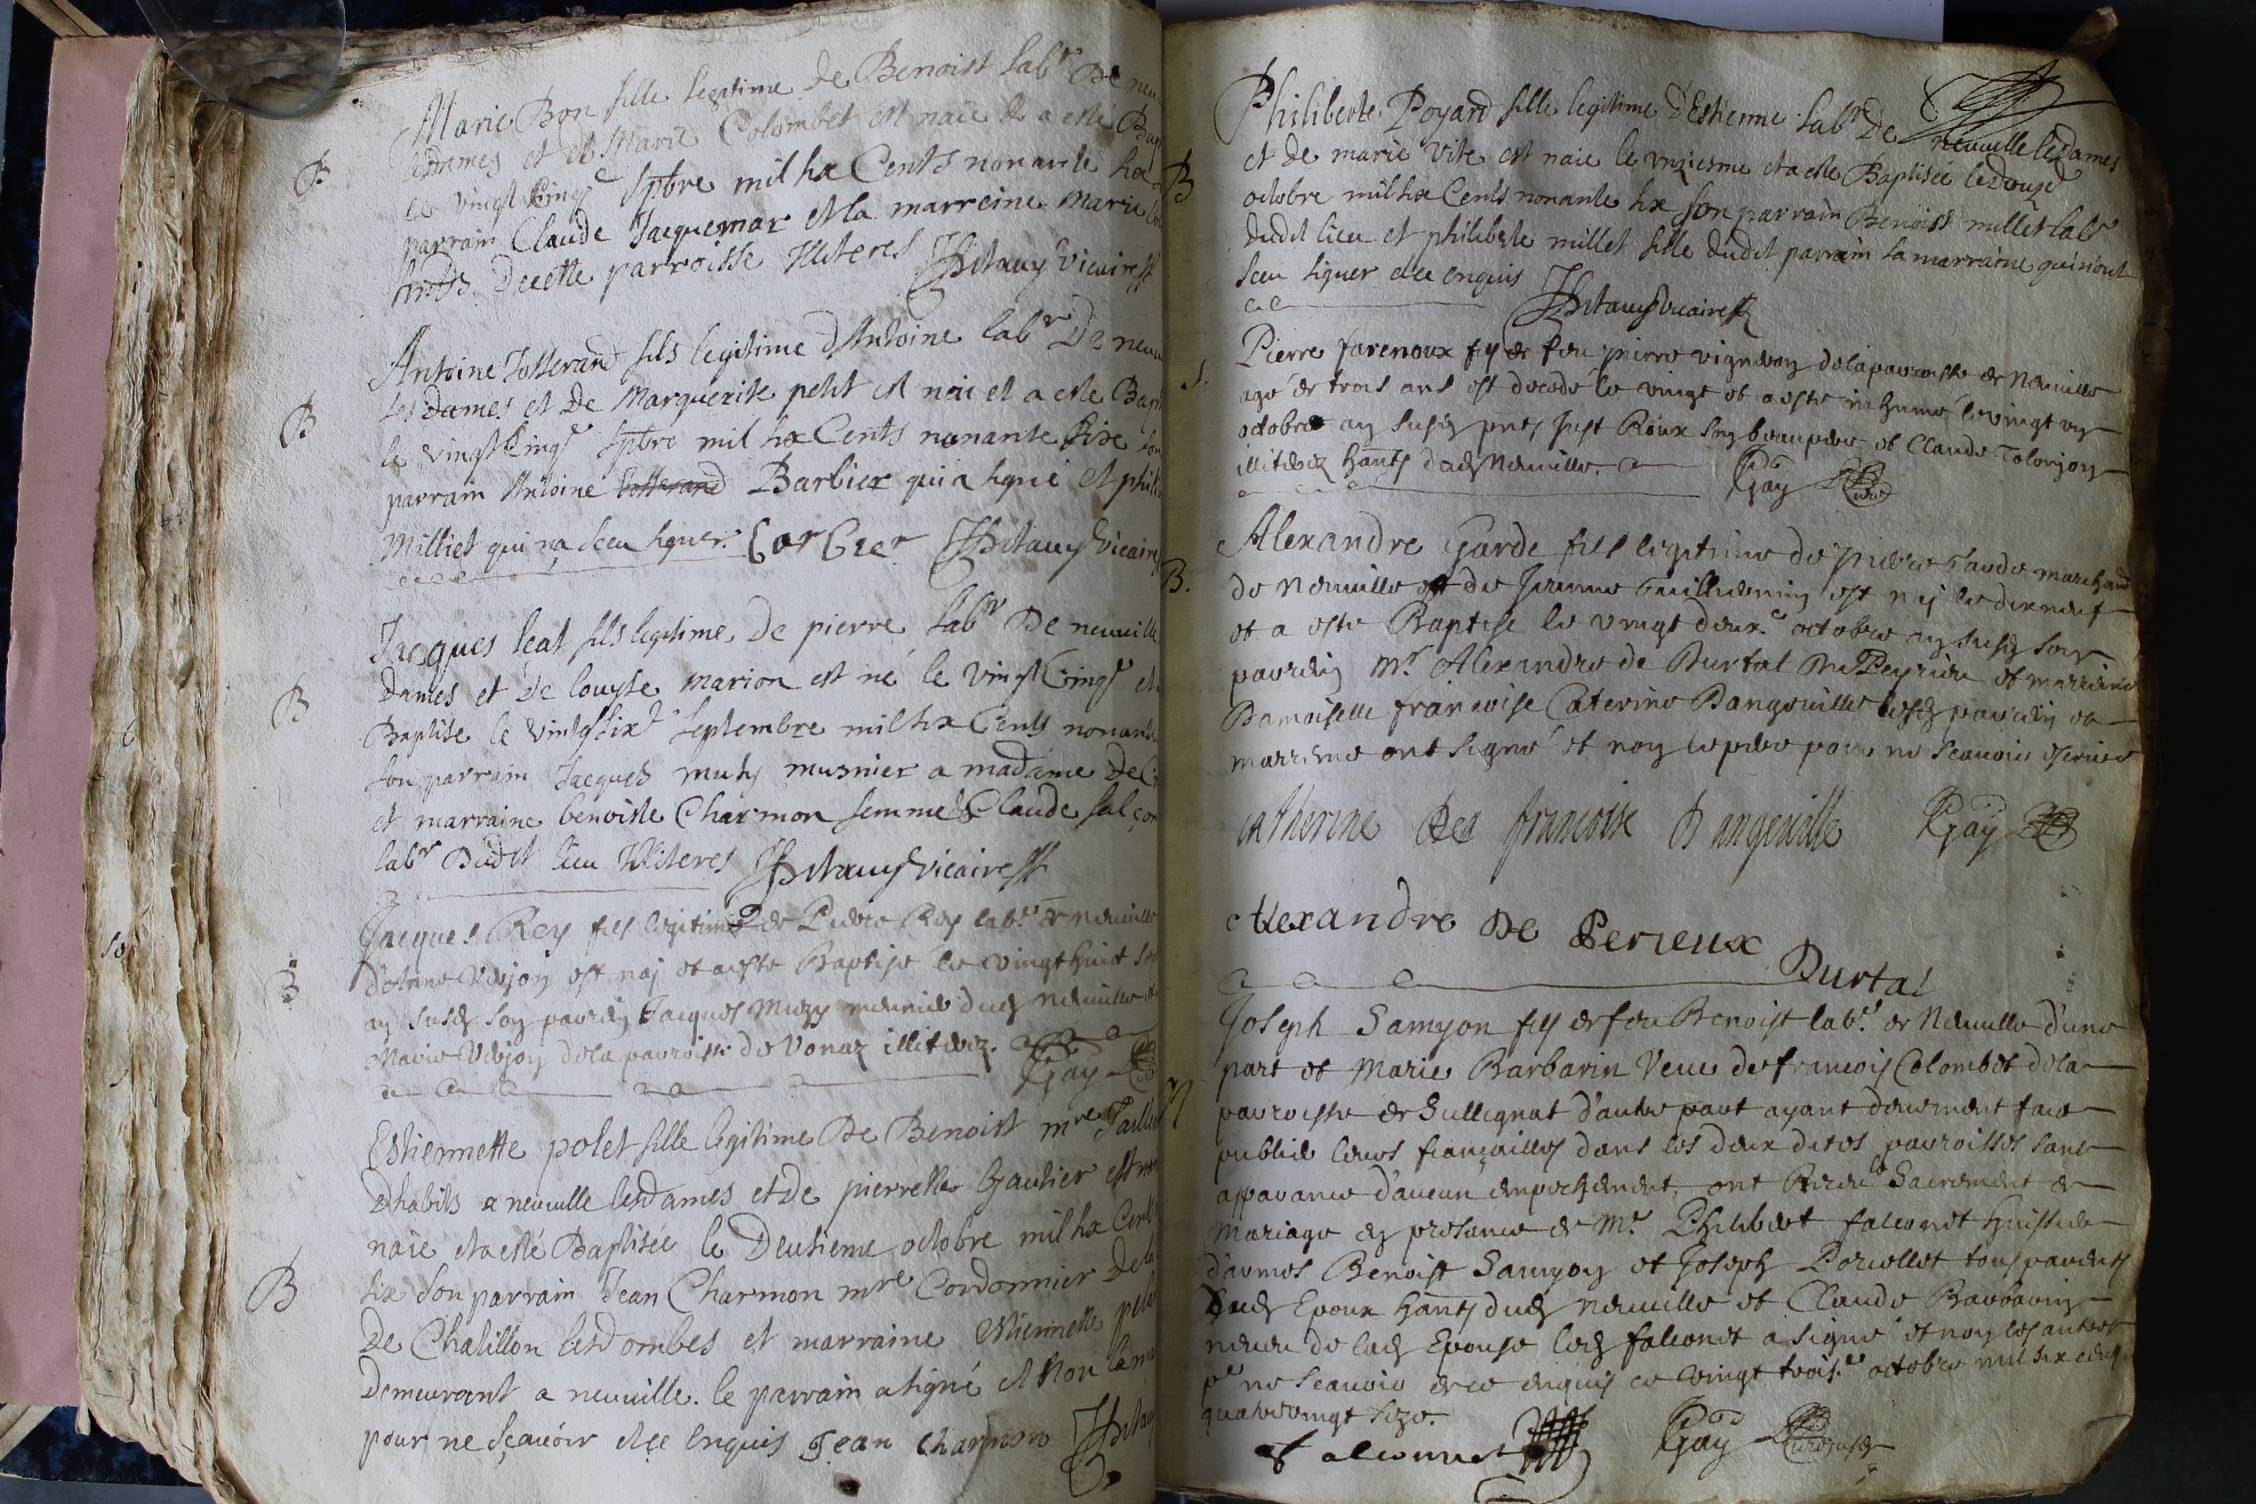 Marie Bon fille legitime de Benoist lab.r De neu
lesdames et de Marie Colombet est naie & a esté Bap
le vingt Cinq.e 7pbre mil six Cents nonante six
parrain Claude Jacquemar et la marreine Marie
Decette parroisse Illiteres vicaire
B
Antoine Totterand fils legitime d'Antoine lab.r De neuv
les Dames et De Marguerite petit est nai et a este Bapt
le vingt Cinq.e 7pbre mil six Cents nonante Six son
parrain Antoine Barbier qui a signé et phili
Milliet qui na sceu signer. Barbier vicaire
B
Jacques leat fils legitime De pierre lab.r De neuuille
Dames et De louyse marion est né le vingt Cinq.e et
Baptise le vintg Six.e Septembre mil six Cents nonante
son parrain Jacques musy musnier a madame De
et marraine benoiste Charmon femme de Claude falcon
lab.r Dudit lieu Illiteres vicaire
B
Jacques Rey fils legitime de Pierre Rey lab.r de neuuille
d'Anne Verjon est naj et a este Baptise le vingt huit
an susd son parrin Jacques Muzy meunier dud neuuille et
Marie Verjon de la parroisse de Vonaz illiterez.
Gay Curé
B
Estiennette polet fille legitime De Benoist m.re Taill
Dhabits a neuuille lesdames et de pierrette Gautier est
naie et a esté Baptisée le Deusieme octobre mil six Cents
six son parrain Jean Charmon m.re Cordonnier De la
De Chatillon lesdombes et marraine Estiennette polet
Demeurant a neuuille. le parrain a signé et Non la ma
pour ne sçauoir et ce Enquis Jean Charmon
B
Philiberte Poyard fille legitime D'Estienne lab.r De neuuille lesdames
et de marie vite est naie le vnziesme et a este Baptisée le douze
octobre mil six Cents nonante six son parrain Benoist millet lab.r
Dudit lieu et philiberte millet fille dudit parrain la marraine qui n'ont
sceu signer et ce enquis vicaire
B
Pierre farenoux fils de feu pierre vigneron de la parroisse de Neuuille
agé de trois ans est decedé le vingt et a este inhumé le vingt un
octobre an susd pnts Just Roux son beaupere et Claude Tolonjon
illiterez hants dud Neuuille.
Gay Curé
S.
Alexandre Garde fils legitime de pierre Garde marchand
de Neuuille et de Jeanne Guillermin est naj le dixneuf
et a este Baptise le vingt deux.e octobre an susd son
parrin M.r Alexandre de Durtal Du Peyrieu et marrine
Damoiselle francoise Caterine Dangeuille lesd parrin et
marrine ont signé et non le pere pour ne scauoir escrire
B.
Catherine francoise D angeuille Gay
Alexandre De Perieux
Durtal
Joseph Samyon fils de feu Benoist lab.r de Neuuille d'une
part et Marie Barbarin Veuue de francois Colombet de la
parroisse de Sullignat d'autre part ayant deuement faict
publier leurs fiançailles dans les deux dites parroisses sans
apparance d'aucun empechement, ont Receu le Sacrement de
Mariage en presance de M.r Philibert falconet huissier
d'armes Benoist Samyon et Joseph Porcellet tous parents
dud Epoux hants dud neuuille et Claude Barbarin
neueu de lad Epouse led falconet a signé et non les autres
p.r ne scauoir de ce enquis ce vingt trois.e octobre mil six cents
quatrevingt seze.
M
falconnet Gay Curé susd